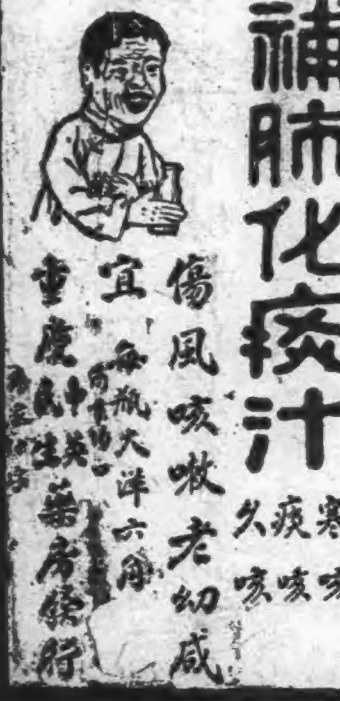 補肺化痰汁
寒咳
痰咳
久咳
傷風咳嗽老幼咸
宜 每瓶大洋六角
重慶中英民生藥房發行